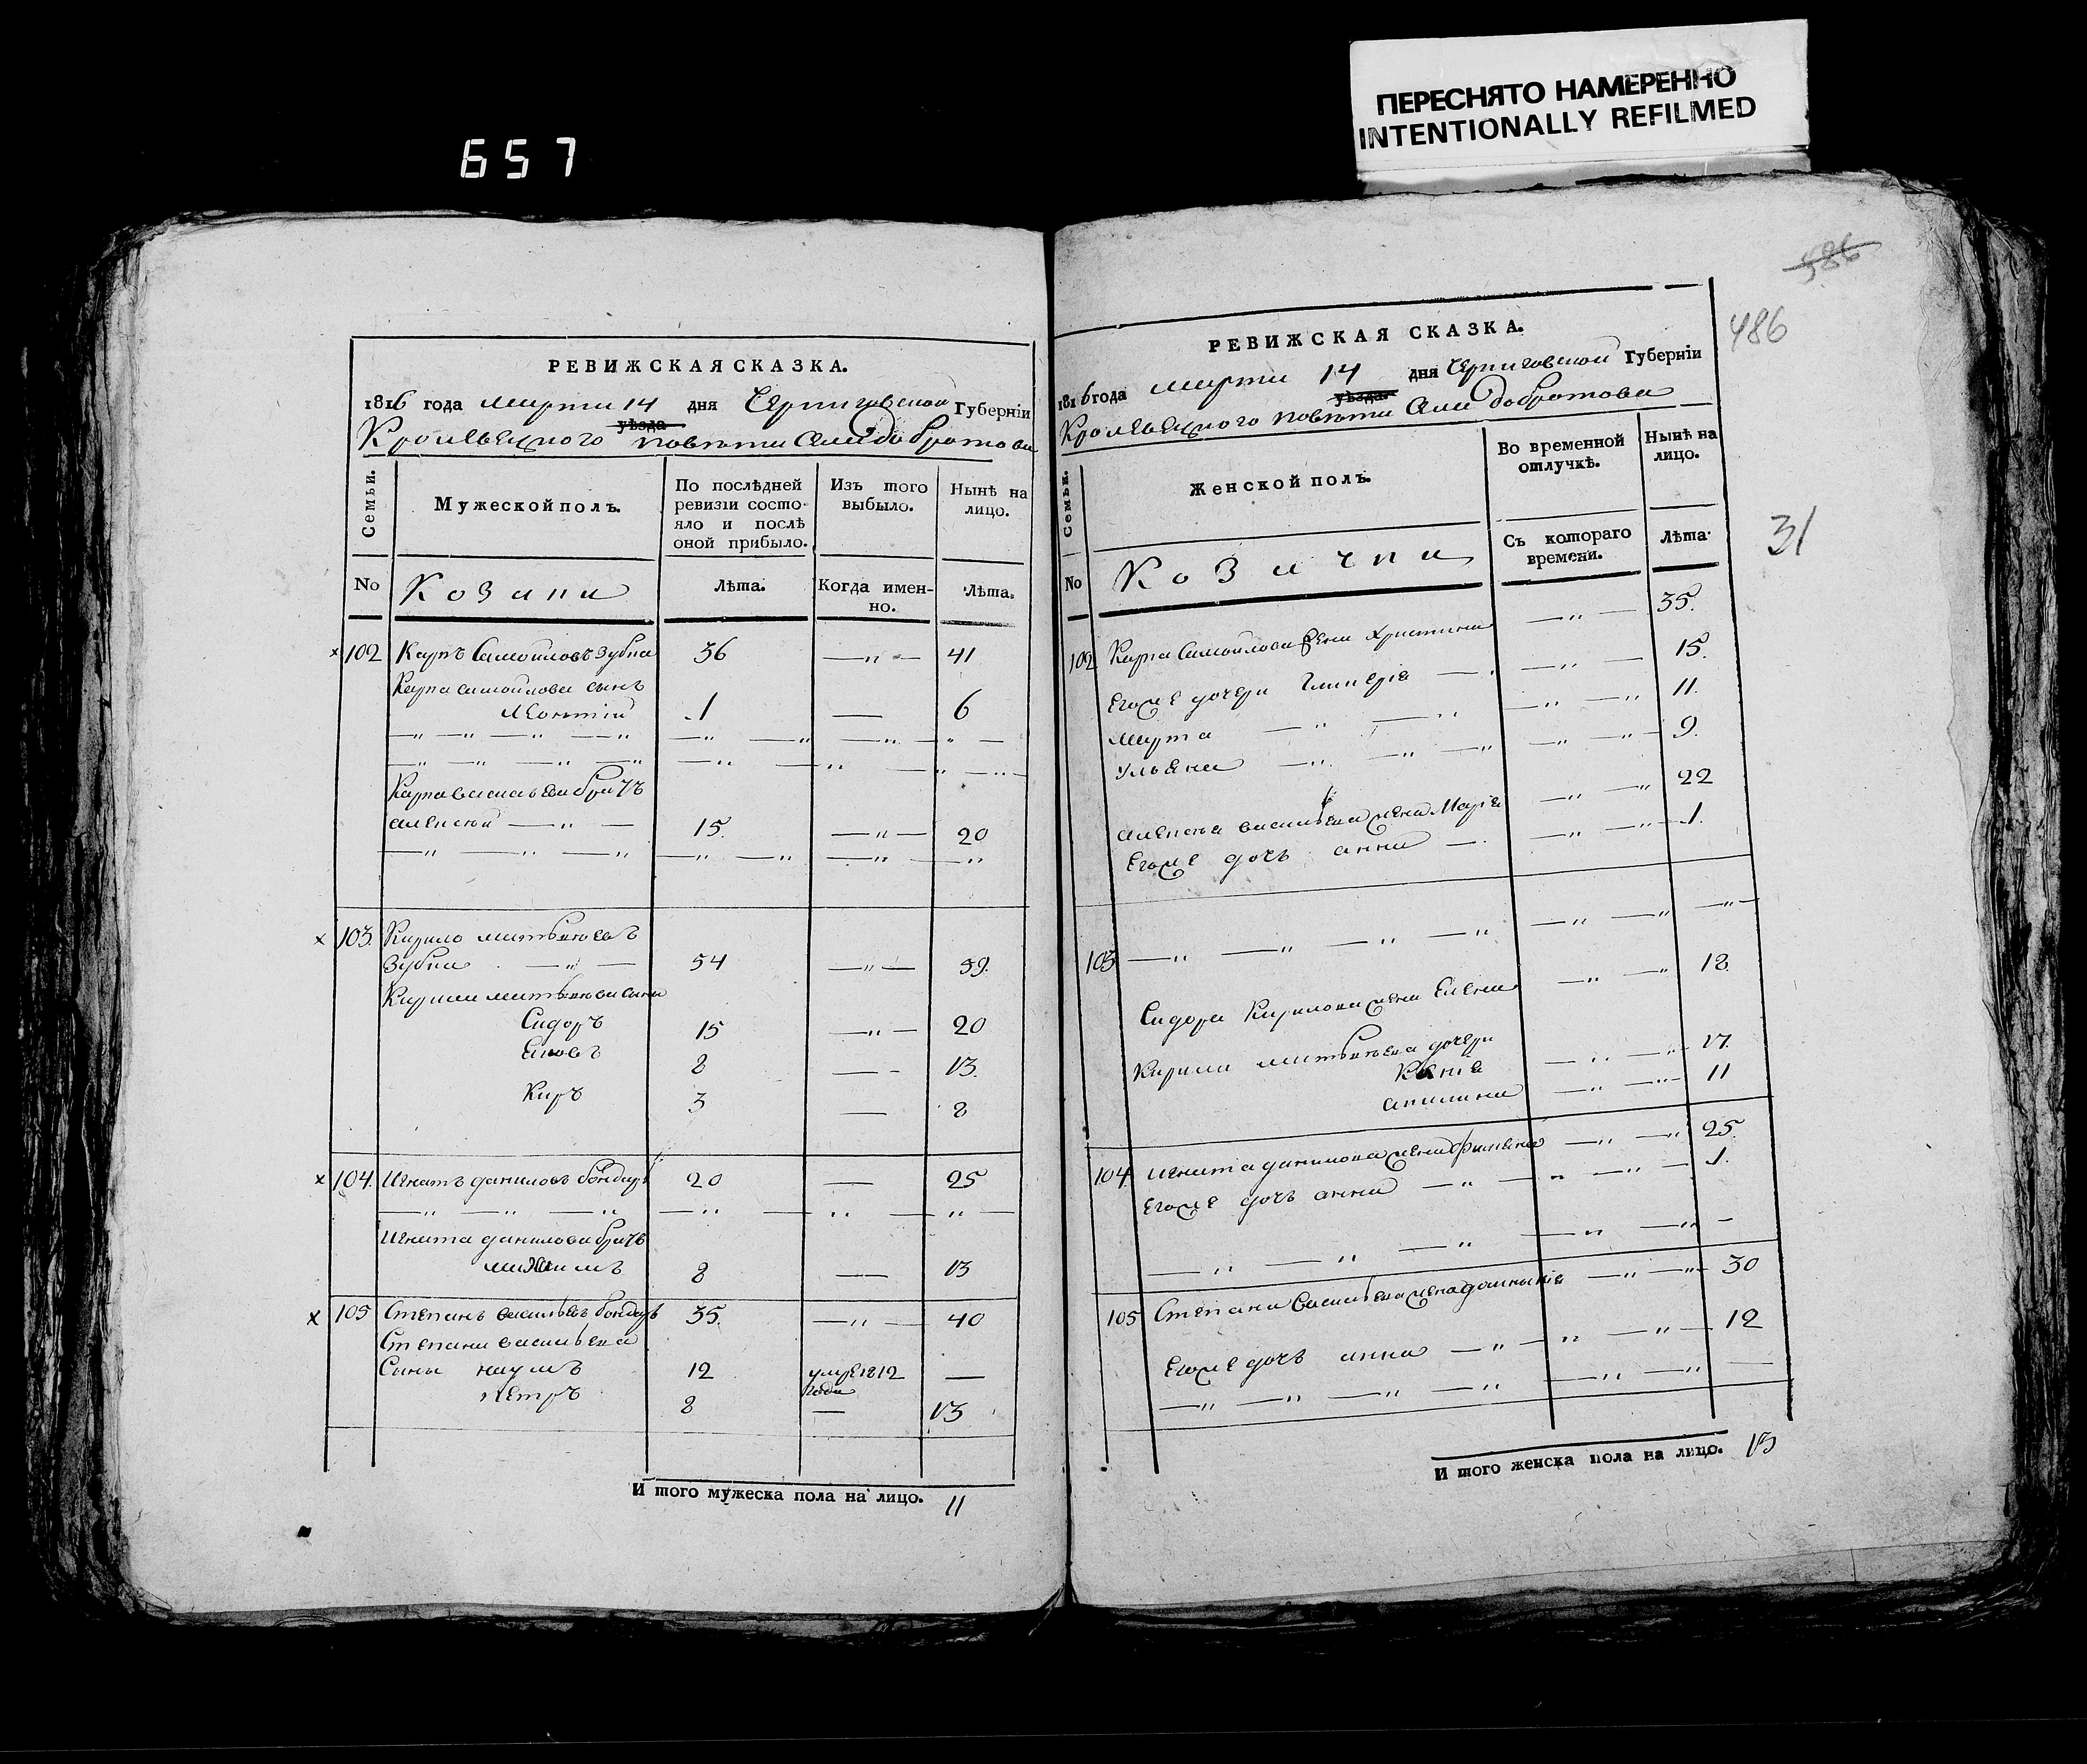 657
ПЕРЕСНЯТО НАМЕРЕННО
INTENTIONALLY REFILMED
РЕВИЖСКАЯ СКАЗКА.
1816 года марта 14 дня Черниговской Губернїи
уѣзда
Кролевецкого повѣта села добротова
Семьи.
Мужеской полъ.
По послѣдней ревизїи состояло и послѣ оной прибыло.
Изъ того выбыло.
Нынѣ на лицо.
No
Козаки
Лѣта.
Когда именно.
Лѣта.
102 Карпъ Самойловъ Зубка 36 41
Карпа самойлова сынъ
Леонтїй 1 6
Карпа васильева братъ
алексѣй 15. 20
103. Кирило матвѣевъ
Зубка 54 59.
Кирила матвѣева сыны
Сидоръ 15 20
Яковъ 8 13.
Киръ 3 8
104. Игнатъ даниловъ бондарь 20 25
Игната данилова братъ
михаилъ 8 13
105 Степанъ васильевъ бондарь 35. 40
Степана васильева
Сыны наумъ 12 умре 1812 года —
петръ 8 — 13
И того мужеска пола на лицо. 11
586
486
31
РЕВИЖСКАЯ СКАЗКА.
1816 года марта 14 дня Черниговской Губернїи
уѣзда.
Кролевецкого повѣта Села добротова
Семьи.
Женской полъ.
Во временной отлучкѣ.
Нынѣ на лицо.
No
Козачки
Съ котораго времени.
Лѣта.
102 Карпа Самойлова жена христина 35.
Егоже дочери Гликерїя 15.
марта 11.
Ульяна 9.
алексѣя васильева жена Марїя 22
Егоже дочь анна 1.
103
Сидора Кирилова жена Елена 18.
Кирила матвѣева дочери
Ксенїя 17.
акилина 11
104 Игната данилова жена 25.
Егоже дочь анна 1.
105 Степана васильева жена домникїя 30
Егоже дочь анна 12
И того женска пола на лицо. 13